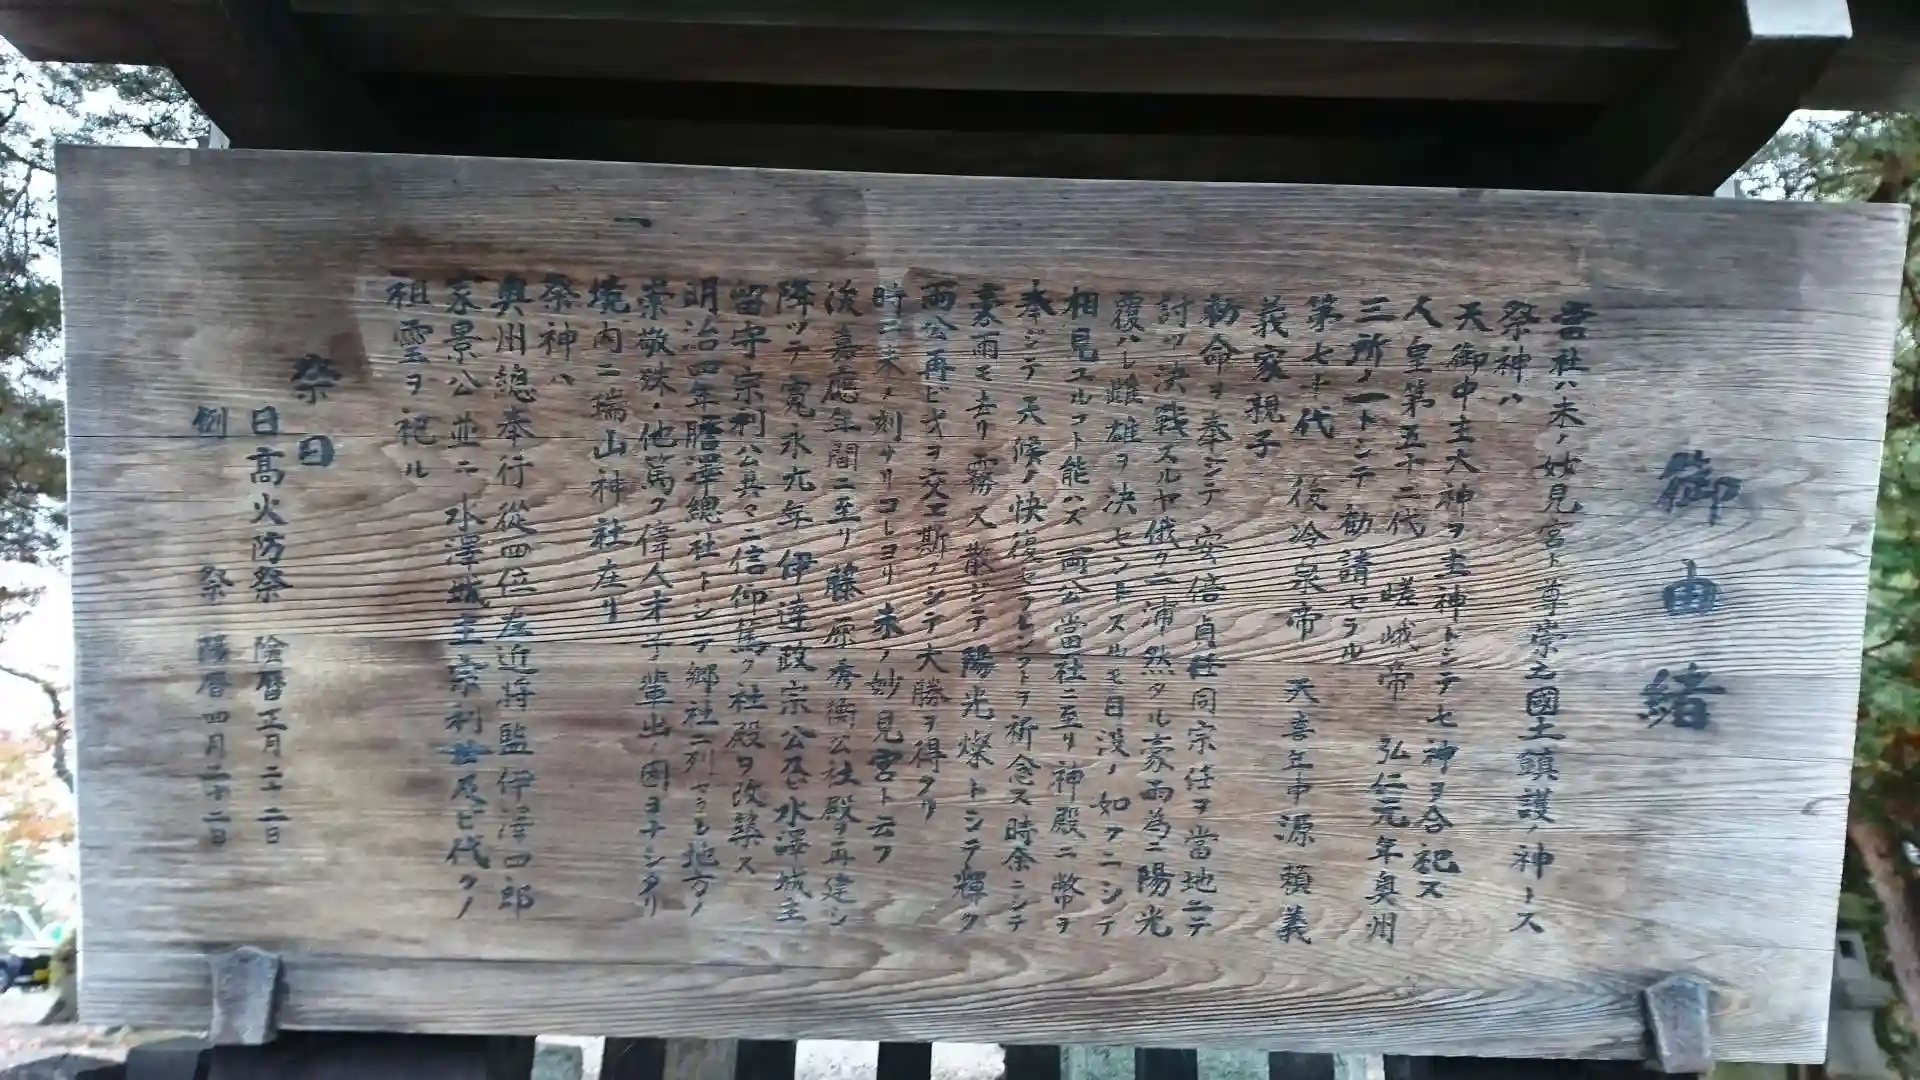 御由緒
當社ハ未ノ妙見宮ト尊崇之國土鎮護ノ神トス
祭神ハ
天御中主大神ヲ主神トシテ七神ヲ合祀ス
人皇第五十二代 嵯峨帝 弘仁元年奥州
三所ノ一トシテ勧請セラル
第七十代 後冷泉帝 天喜年中源頼義
義家親子
勅命ヲ奉シテ安倍貞任同宗任ヲ當地ニテ
討ツ決戦スルヤ俄クニ沛然タル豪雨為ニ陽光
覆ハレ雌雄ヲ決セントスルモ日没ノ如クニシテ
相見エルコト能ハズ両公當社ニ至リ神殿ニ幣ヲ
奉ジテ天候ノ快復セラレンコトヲ祈念ス時余ニシテ
豪雨モ去リ霧又散ジテ陽光燦トシテ輝ク
両公再ビ弐ヲ交エ斯クシテ大勝ヲ得タリ
時ニ未ノ刻ナリコレヨリ未ノ妙見宮ト云フ
後嘉應年間ニ至リ藤原秀衡公社殿ヲ再建シ
降ツテ寛永九年伊達政宗公及ビ水澤城主
留守宗利公具々ニ信仰篤ク社殿ヲ改築ス
明治四年膽澤總社トシテ郷社ニ列セラレ地方ノ
崇敬殊ノ他篤ク偉人才子ノ輩出ノ因ヲナシタリ
境内ニ瑞山神社在リ
祭神ハ
奥州總奉行従四位左近将監伊澤四郎
家景公並ニ水澤城主宗利世及ビ代々ノ
祖霊ヲ祀ル
祭日
日高火防祭 陰暦正月二十二日
例祭 陽暦四月二十二日